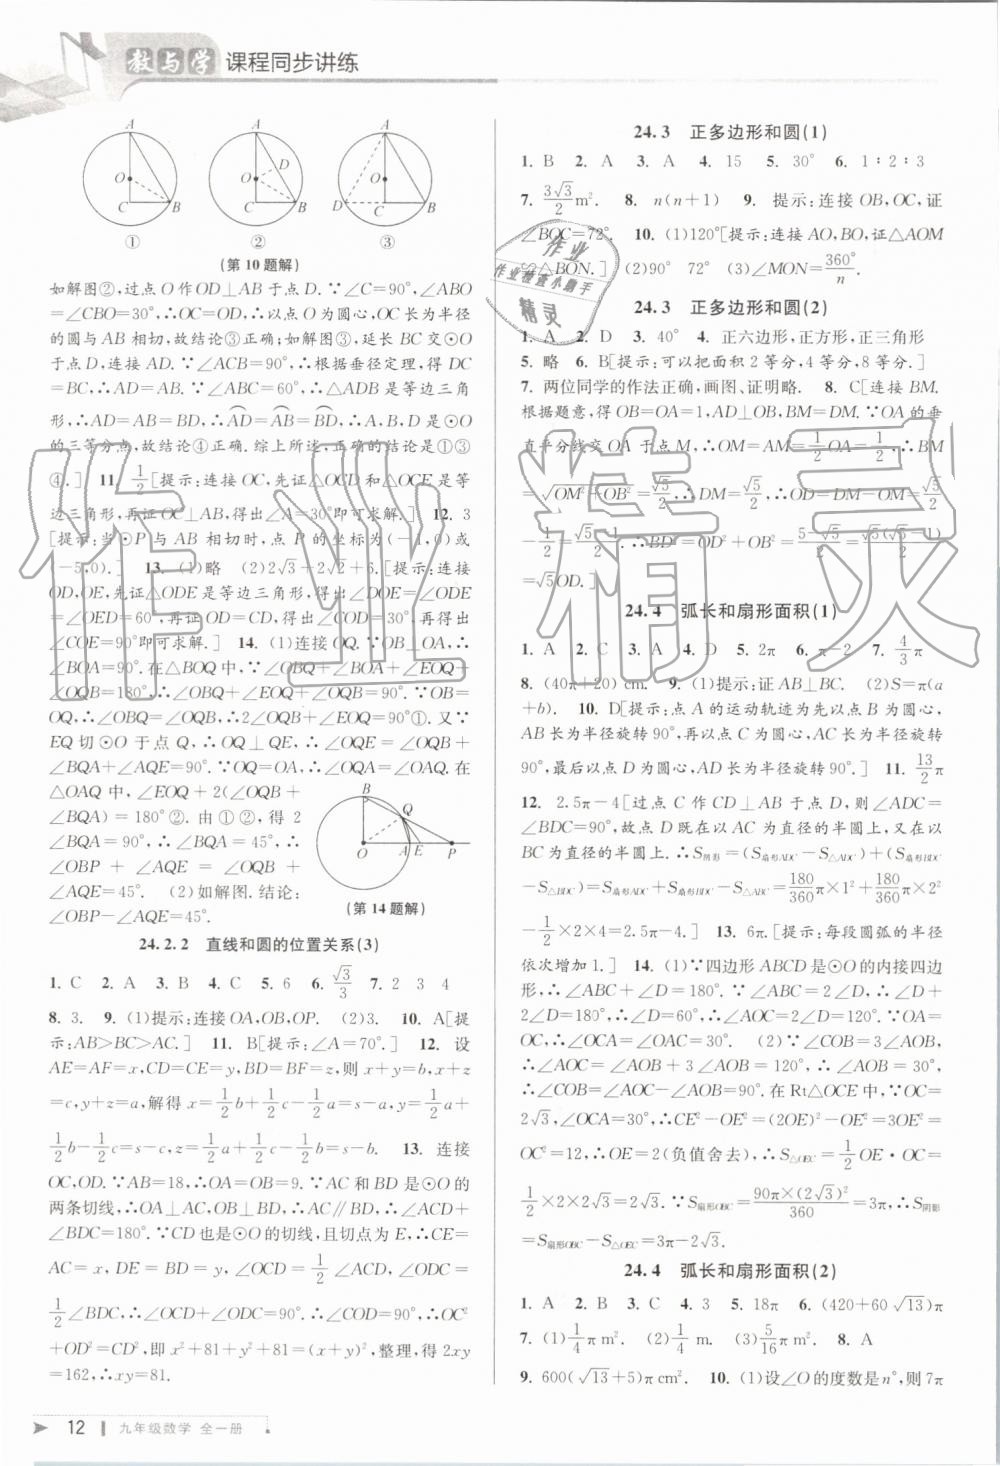 教与学 课程同步讲练
A O C B
①
A D O C B
②
A O D C B
③
(第10题解)
如解图②,过点O作OD⊥AB于点D.∵∠C=90°,∠ABO
=∠CBO=30°,∴OC=OD,∴以点O为圆心,OC长为半径
的圆与AB相切,故结论③正确;如解图③,延长BC交⊙O
于点D,连接AD.∵∠ACB=90°,∴根据垂径定理,得DC
=BC,∴AD=AB.∵∠ABC=60°,∴△ADB是等边三角
形,∴AD=AB=BD,∴AD⌒=AB⌒=BD⌒,∴A,B,D是⊙O
的三等分点,故结论④正确.综上所述,正确的结论是①③
④.] 11. 1/2[提示:连接OC,先证△OCD和△OCE是等
边三角形,再证OC⊥AB,得出∠A=30°即可求解.] 12. 3
[提示:当⊙P与AB相切时,点P的坐标为(-1,0)或
(-5,0).] 13. (1)略 (2)2√3+2√2+6.[提示:连接
OD,OE,先证△ODE是等边三角形,得出∠DOE=∠ODE
=∠OED=60°,再证OD=CD,得出∠COD=30°,再得出
∠COE=90°即可求解.] 14. (1)连接OQ.∵OB⊥OA,∴
∠BOA=90°.在△BOQ中,∵∠OBQ+∠BOA+∠EOQ+
∠OQB=180°,∴∠OBQ+∠EOQ+∠OQB=90°.∵OB=
OQ,∴∠OBQ=∠OQB,∴2∠OQB+∠EOQ=90°①.又∵
EQ切⊙O于点Q,∴OQ⊥QE,∴∠OQE=∠OQB+
∠BQA+∠AQE=90°.∵OQ=OA,∴∠OQA=∠OAQ.在
△OAQ中,∠EOQ+2(∠OQB+
∠BQA)=180°②.由①②,得2
∠BQA=90°,∴∠BQA=45°,∴
∠OBP+∠AQE=∠OQB+
∠AQE=45°. (2)如解图.结论:
∠OBP-∠AQE=45°.
B Q O A E P
(第14题解)
24.2.2 直线和圆的位置关系(3)
1. C 2. A 3. B 4. C 5. 6 6. √3/3 7. 2 3 4
8. 3. 9. (1)提示:连接OA,OB,OP. (2)3. 10. A[提
示:AB>BC>AC.] 11. B[提示:∠A=70°.] 12. 设
AE=AF=x,CD=CE=y,BD=BF=z,则x+y=b,x+z
=c,y+z=a,解得x=1/2b+1/2c-1/2a,y=1/2a+
1/2b-1/2c=s-c,z=1/2a+1/2c-1/2b=s-b. 13. 连接
OC,OD.∵AB=18,∴OA=OB=9.∵AC和BD是⊙O的
两条切线,∴OA⊥AC,OB⊥BD,∴AC∥BD,∴∠ACD+
∠BDC=180°.∵CD也是⊙O的切线,且切点为E,∴CE=
AC=x,DE=BD=y,∠OCD=1/2∠ACD,∠ODC=
1/2∠BDC,∴∠OCD+∠ODC=90°,∴∠COD=90°,∴OC²
+OD²=CD²,即x²+81+y²+81=(x+y)²,整理,得2xy
=162,∴xy=81.
24.3 正多边形和圆(1)
1. B 2. A 3. A 4. 15 5. 30° 6. 1∶2∶3
7. 3√3/2 m². 8. n(n+1) 9. 提示:连接OB,OC,证
∠BOC=72°. 10. (1)120°[提示:连接AO,BO,证△AOM
≌△BON.] (2)90° 72° (3)∠MON=360°/n.
24.3 正多边形和圆(2)
1. A 2. D 3. 40° 4. 正六边形,正方形,正三角形
5. 略 6. B[提示:可以把面积2等分,4等分,8等分.]
7. 两位同学的作法正确,画图、证明略. 8. C[连接BM.
根据题意,得OB=OA=1,AD⊥OB,BM=DM.∵OA的垂
直平分线交OA于点M,∴OM=AM=1/2OA=1/2,∴BM
=√(OM²+OB²)=√5/2,∴DM=√5/2,∴OD=DM-OM=√5/2-
1/2=(√5-1)/2.∴BD²=OD²+OB²=(5-√5)/2=√5(√5-1)/2
=√5OD.]
24.4 弧长和扇形面积(1)
1. A 2. C 3. A 4. A 5. 2π 6. π-2 7. 4/3π
8. (40π+20) cm. 9. (1)提示:证AB⊥BC. (2)S=π(a
+b). 10. D[提示:点A的运动轨迹为先以点B为圆心,
AB长为半径旋转90°,再以点C为圆心,AC长为半径旋转
90°,最后以点D为圆心,AD长为半径旋转90°.] 11. 13/2π
12. 2.5π-4[过点C作CD⊥AB于点D,则∠ADC=
∠BDC=90°,故点D既在以AC为直径的半圆上,又在以
BC为直径的半圆上.∴S阴影=(S扇形ADC-S△ADC)+(S扇形BDC
-S△BDC)=S扇形ADC+S扇形BDC-S△ABC=180/360π×1²+180/360π×2²
-1/2×2×4=2.5π-4.] 13. 6π.[提示:每段圆弧的半径
依次增加1.] 14. (1)∵四边形ABCD是⊙O的内接四边
形,∴∠ABC+∠D=180°.∵∠ABC=2∠D,∴∠D+
2∠D=180°,∴∠D=60°,∴∠AOC=2∠D=120°.∵OA=
OC,∴∠OCA=∠OAC=30°. (2)∵∠COB=3∠AOB,
∴∠AOC=∠AOB+3∠AOB=120°,∴∠AOB=30°,
∴∠COB=∠AOC-∠AOB=90°.在Rt△OCE中,∵OC=
2√3,∠OCA=30°,∴CE²-OE²=(2OE)²-OE²=3OE²=
OC²=12,∴OE=2(负值舍去),∴S△OEC=1/2OE·OC=
1/2×2×2√3=2√3.∵S扇形OBC=90π×(2√3)²/360=3π,∴S阴影
=S扇形OBC-S△OEC=3π-2√3.
24.4 弧长和扇形面积(2)
1. A 2. B 3. C 4. 3 5. 18π 6. (420+60√13)π
7. (1)1/4π m². (2)1/4 m. (3)5/16π m². 8. A
9. 600(√13+5)π cm². 10. (1)设∠O的度数是n°,则7π
12 九年级数学 全一册
作业精灵
作业
作业检查小助手
精灵